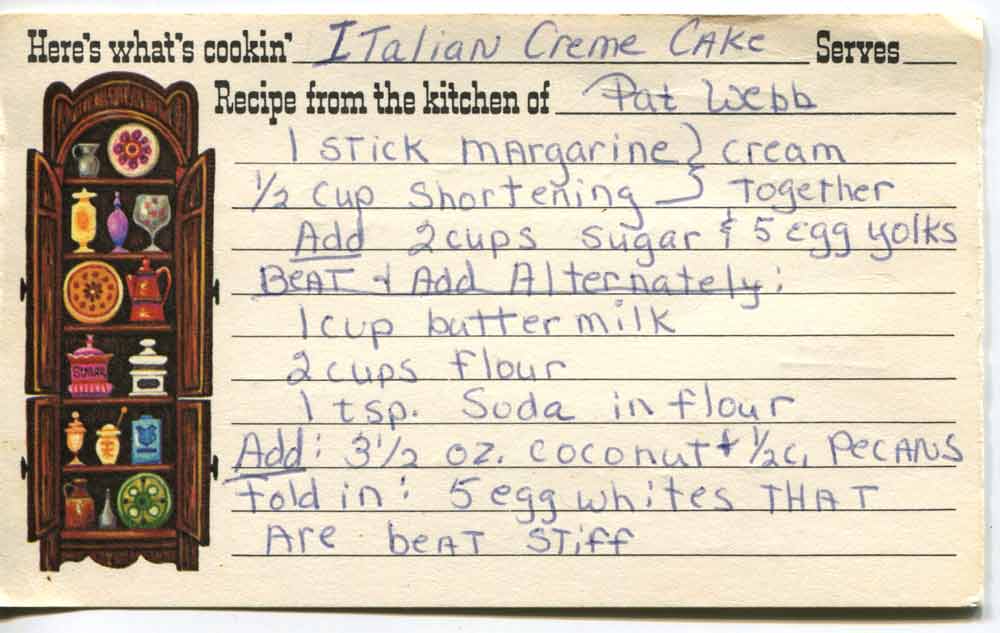 Here's what's cookin' Italian Creme Cake Serves
Recipe from the kitchen of Pat Webb
1 stick margarine } cream
1/2 cup shortening } Together
Add 2 cups sugar & 5 egg yolks
Beat & Add Alternately:
1 cup buttermilk
2 cups flour
1 tsp. Soda in flour
Add: 3 1/2 oz. coconut & 1/2 c. pecans
Fold in: 5 egg whites THAT
Are beat stiff
SUGAR